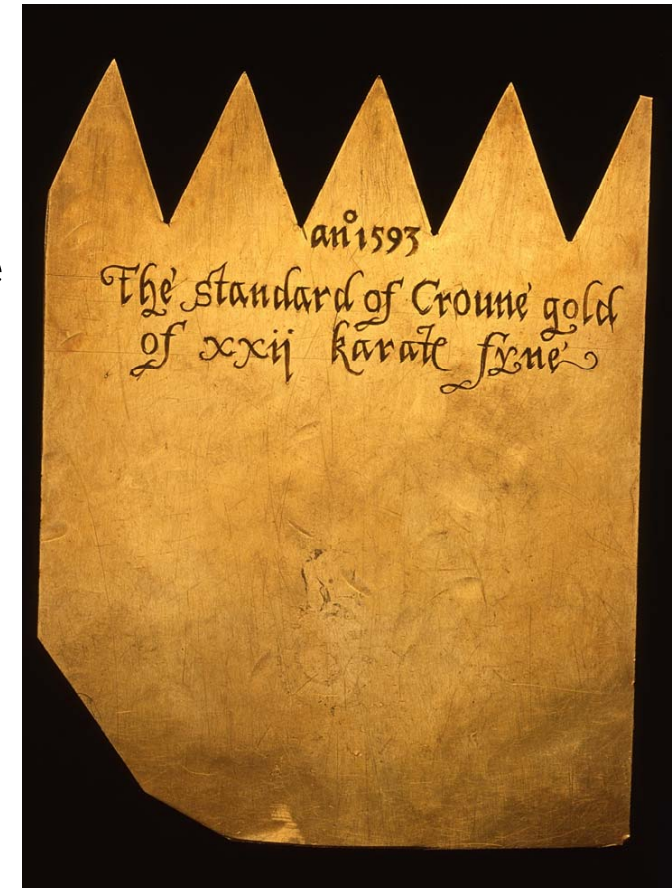 anº 1593
The standard of Croune gold
of xxij karate fyne